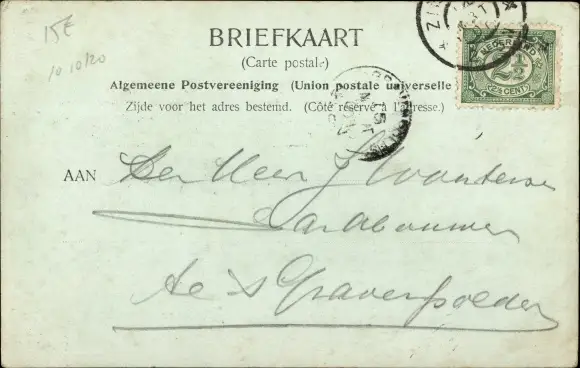 15E
10 10/20
BRIEFKAART
(Carte postale)
Algemeene Postvereeniging (Union postale universelle
Zijde voor het adres bestemd. (Côté réservé à l'adresse.)
NEDERLAND
2½
(2½ CENT)
ZI
AAN Den Heer J Wouterse
Landbouwer
te 's Gravenpolder